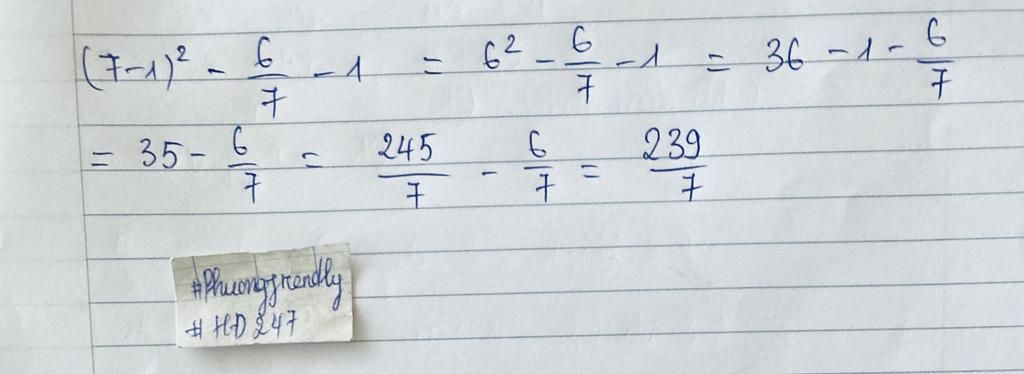 (7-1)² - 6/7 - 1 = 6² - 6/7 - 1 = 36 - 1 - 6/7
= 35 - 6/7 = 245/7 - 6/7 = 239/7
#Phuongfrendly
#HD247